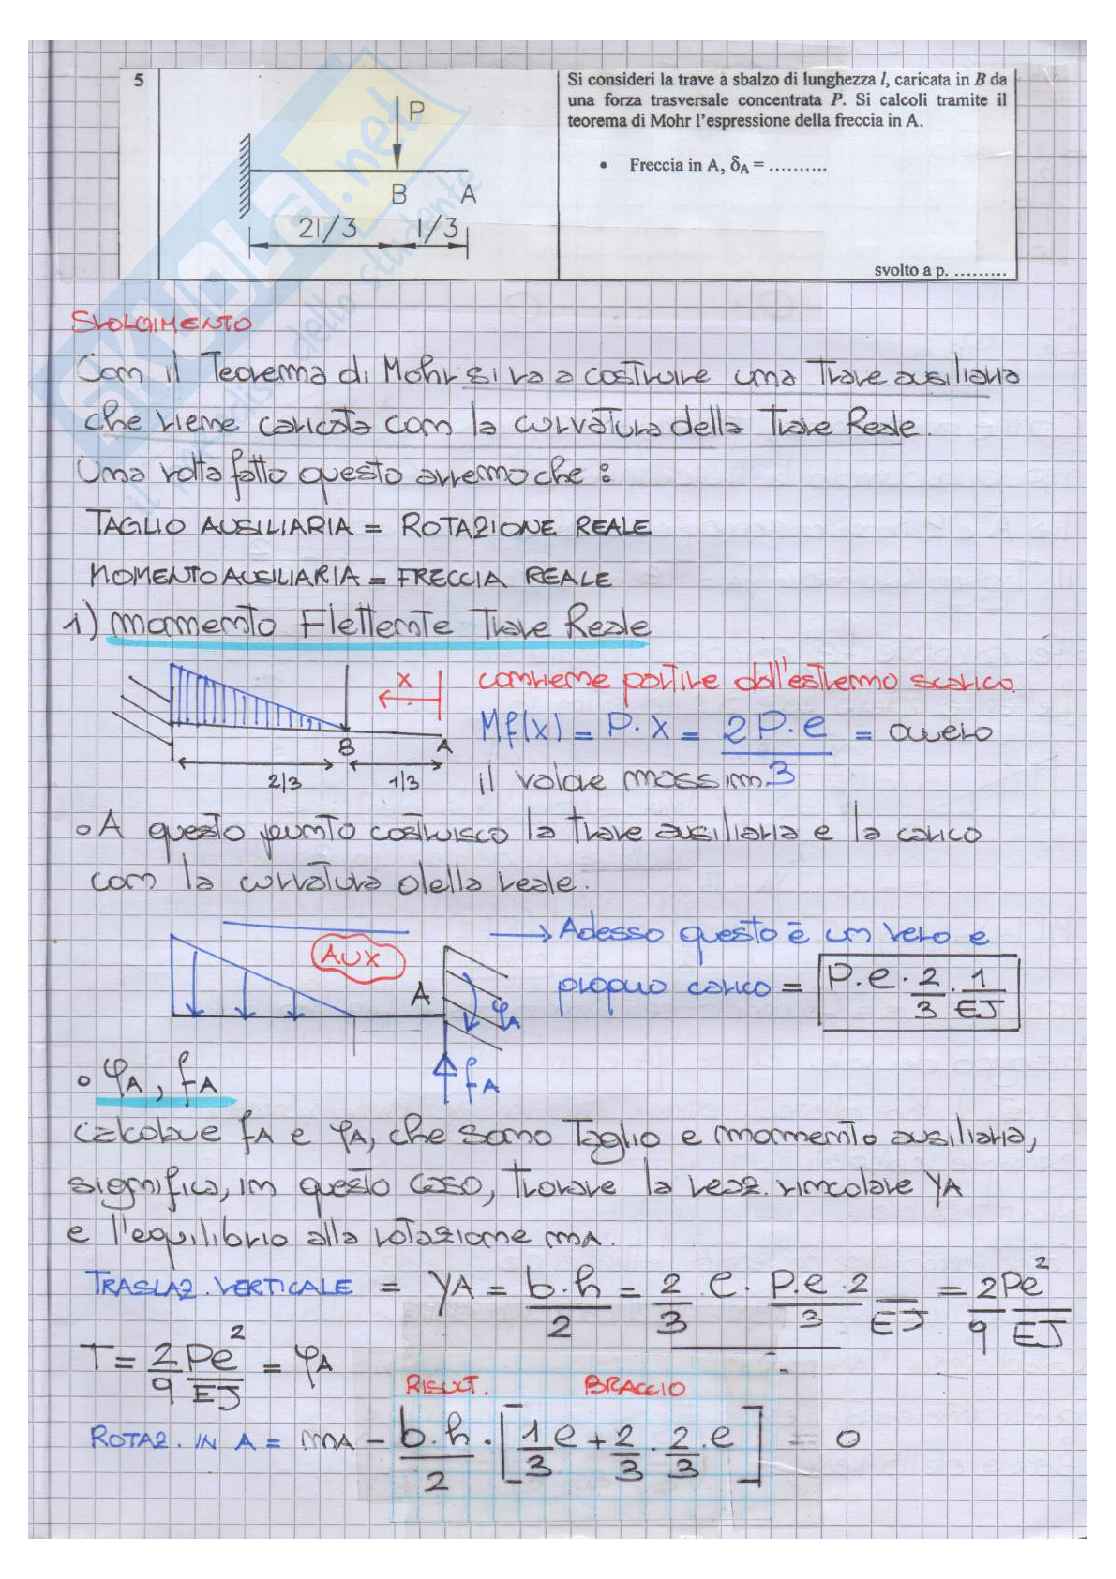 5
Si consideri la trave a sbalzo di lunghezza l, caricata in B da
una forza trasversale concentrata P. Si calcoli tramite il
teorema di Mohr l'espressione della freccia in A.
• Freccia in A, δA = ..........
svolto a p. .........
P
B A
2l/3 l/3
SVOLGIMENTO
Con il Teorema di Mohr si va a costruire una Trave ausiliaria
che viene caricata con la curvatura della Trave Reale.
Una volta fatto questo avremo che :
TAGLIO AUSILIARIA = ROTAZIONE REALE
MOMENTO AUSILIARIA = FRECCIA REALE
1) Momento Flettente Trave Reale
x
conviene partire dall'estremo scarico.
Mf(x) = P·x = 2P·e/3 = ovvero
il valore massimo
B A
2/3 1/3
o A questo punto costruisco la trave ausiliaria e la carico
con la curvatura della reale.
AUX
A
φA
fA
→ Adesso questo è un vero e
proprio carico = P·e·2/3·1/EJ
o φA, fA
Calcolare fA e φA, che sono Taglio e momento ausiliaria,
significa, in questo caso, trovare la reaz. vincolare YA
e l'equilibrio alla rotazione mA.
TRASLAZ. VERTICALE = YA = b·h/2 = 2/3 e · P·e·2/3 EJ = 2/9 Pe²/EJ
T = 2/9 Pe²/EJ = φA
RISULT. BRACCIO
ROTAZ. IN A = mA - b·h/2 · [1/3 e + 2/3 · 2/3 · e] = 0